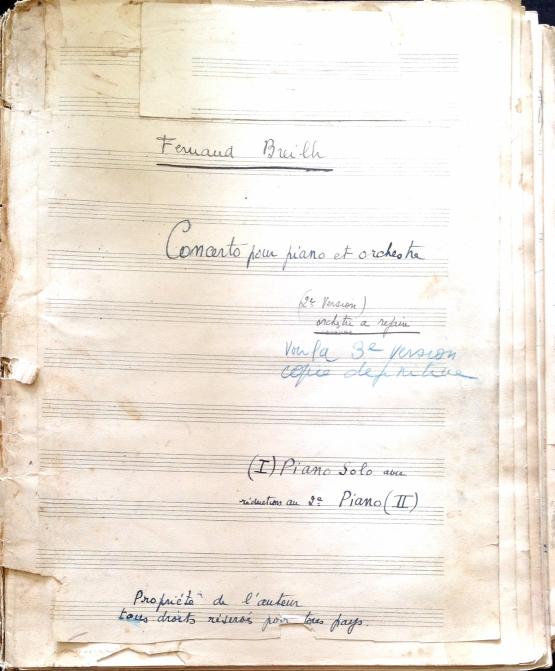 Fernand Breilh
Concerto pour piano et orchestre
(2e Version)
orchestre a refaire
Voir la 3e version
copie definitive
(I) Piano Solo avec
réduction au 2e Piano (II)
Propriété de l'auteur
tous droits réservés pour tous pays.